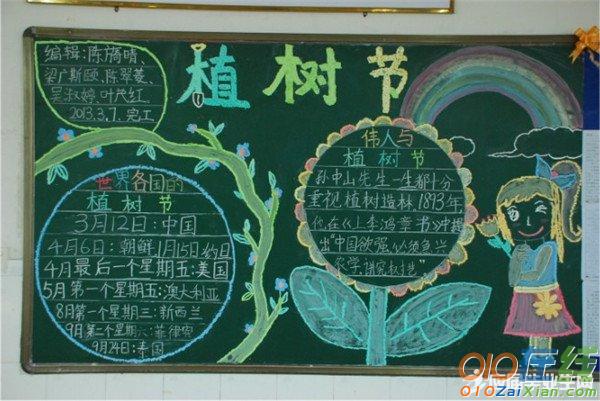 编辑:陈旖晴、
梁广斯颐、陈翠菱、
吴叔婷、叶芃红、
2013.3.7.完工
植树节
世界各国的
植树节
3月12日:中国
4月6日:朝鲜 1月15日:约旦
4月最后一个星期五:美国
5月第一个星期五:澳大利亚
8月第一个星期三:新西兰
9月第一个星期六:菲律宾
9月24日:泰国
伟人与
植树节
孙中山先生一生都十分
重视植树造林1893年
他在《上李鸿章书》中提
出“中国欲强,必须急兴
农学,讲家树艺”
010在线
010ZaiXian.com
应届毕业生网